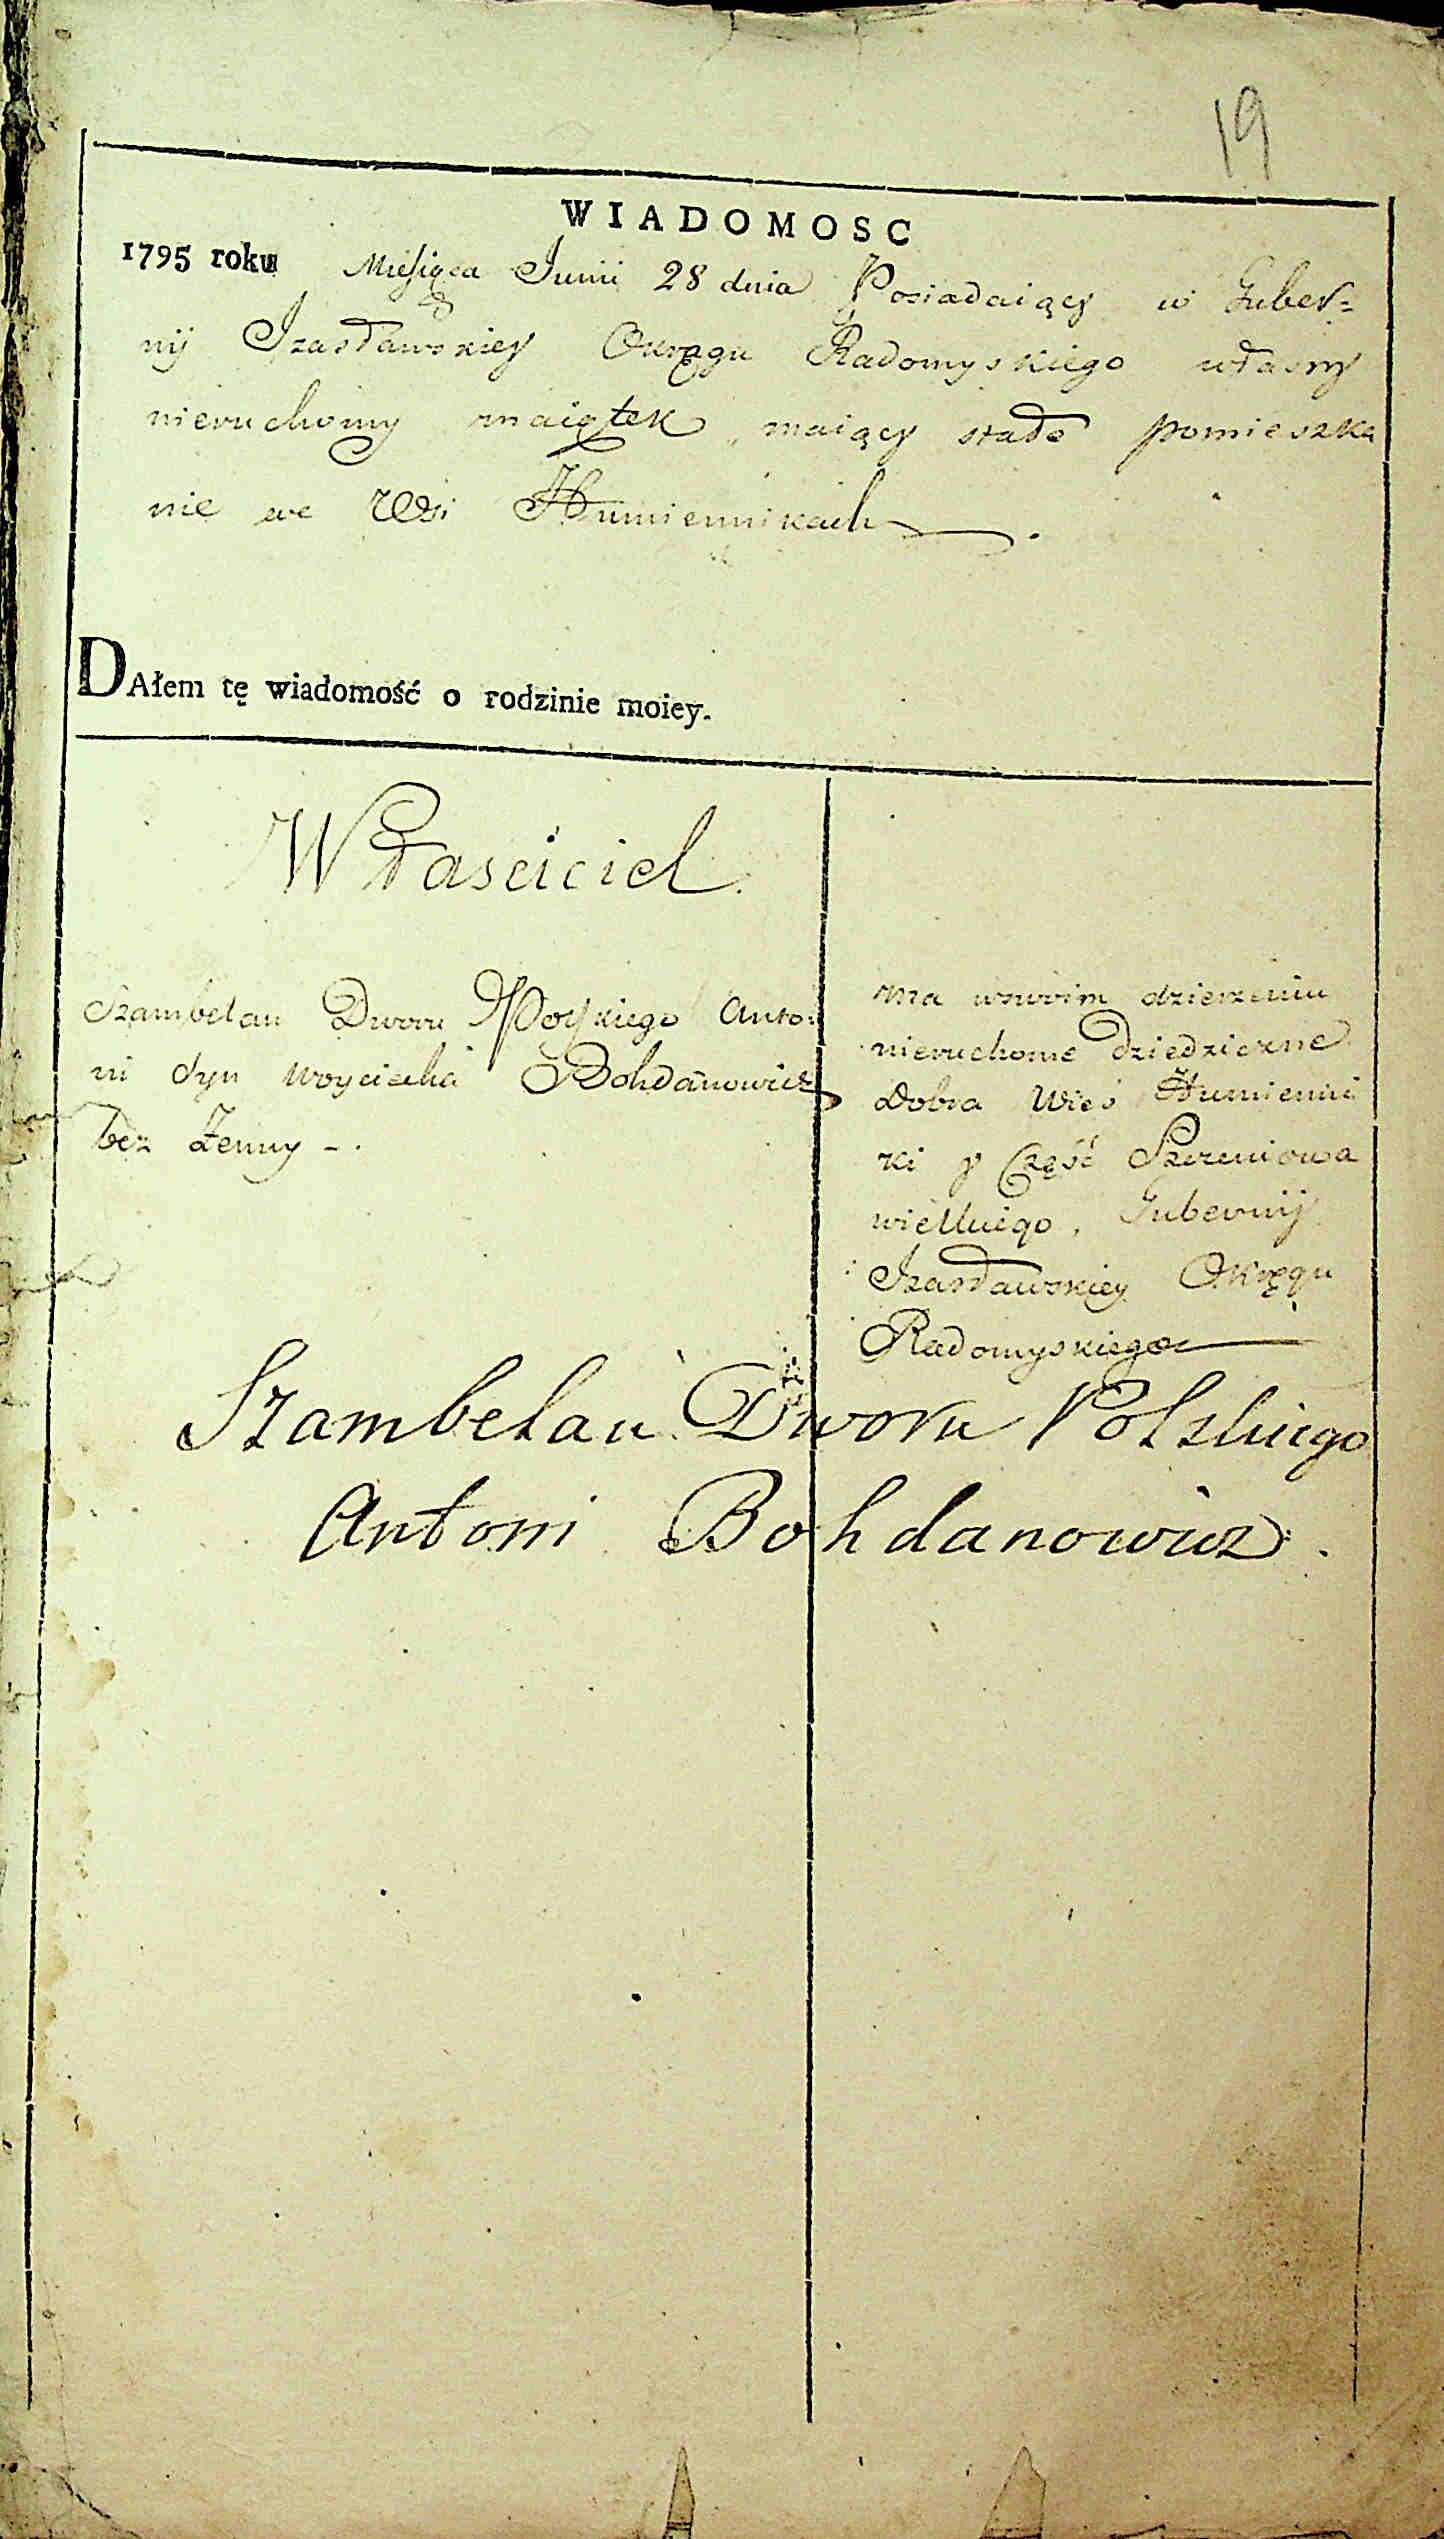 19
WIADOMOSC
1795 roku Miesiąca Junii 28 dnia Posiadaiący w Guber=
nij Izasławskiey Okręgu Radomyskiego własny
nieruchomy maiątek, maiący stałe pomieszka
nie we Wsi Humiennikach.
DAłem tę wiadomość o rodzinie moiey.
Właściciel.
Szambelan Dworu Polskiego Anto:
ni Syn Woyciecha Bohdanowicz
bez Zenny -.
ma wswoim dzierzeniu
nieruchome dziedziczne
Dobra Wieś Humienni
ki y Część Szereniowa
wielkiego, Gubernij
Izasławskiey Okręgu
Radomyskiego
Szambelan Dworu Polskiego
Antoni Bohdanowicz.